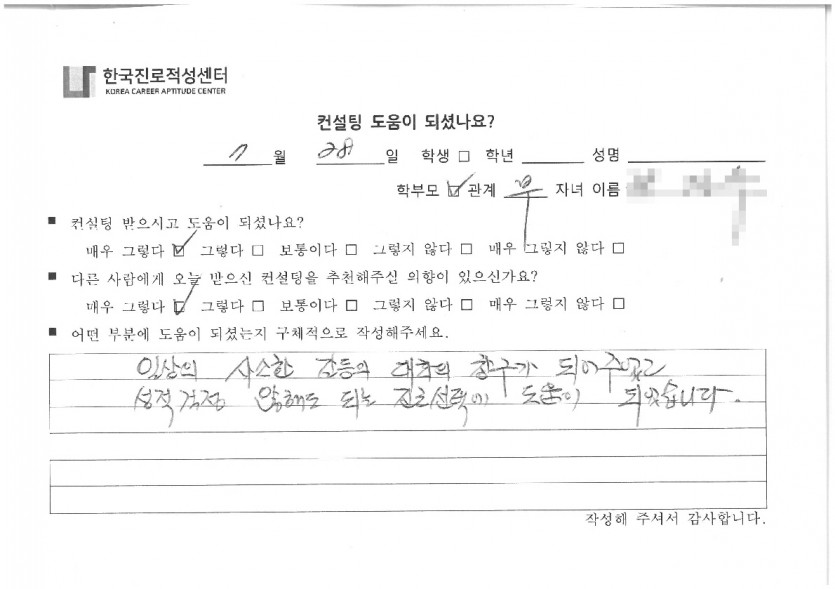 한국진로적성센터
KOREA CAREER APTITUDE CENTER
컨설팅 도움이 되셨나요?
7 월 28 일 학생 □ 학년 성명
학부모 ☑ 관계 부 자녀 이름
■ 컨설팅 받으시고 도움이 되셨나요?
매우 그렇다 ☑ 그렇다 □ 보통이다 □ 그렇지 않다 □ 매우 그렇지 않다 □
■ 다른 사람에게 오늘 받으신 컨설팅을 추천해주실 의향이 있으신가요?
매우 그렇다 ☑ 그렇다 □ 보통이다 □ 그렇지 않다 □ 매우 그렇지 않다 □
■ 어떤 부분에 도움이 되셨는지 구체적으로 작성해주세요.
일상의 사소한 갈등의 대화의 창구가 되어주었고
성적걱정 안해도 되는 진로선택에 도움이 되었습니다.
작성해 주셔서 감사합니다.